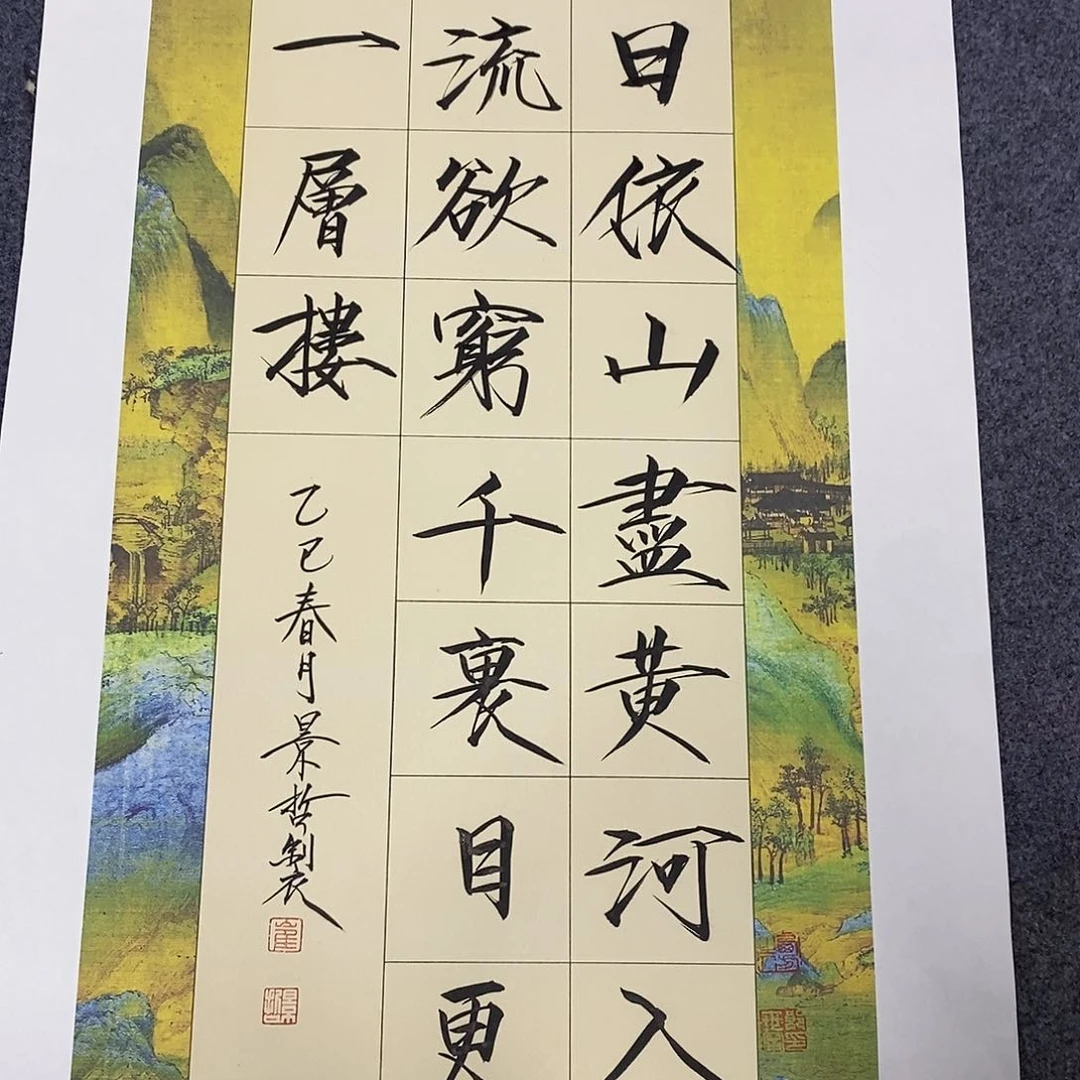 日依山盡黄河入
流欲窮千裏目更
一層樓
乙巳春月景哲製